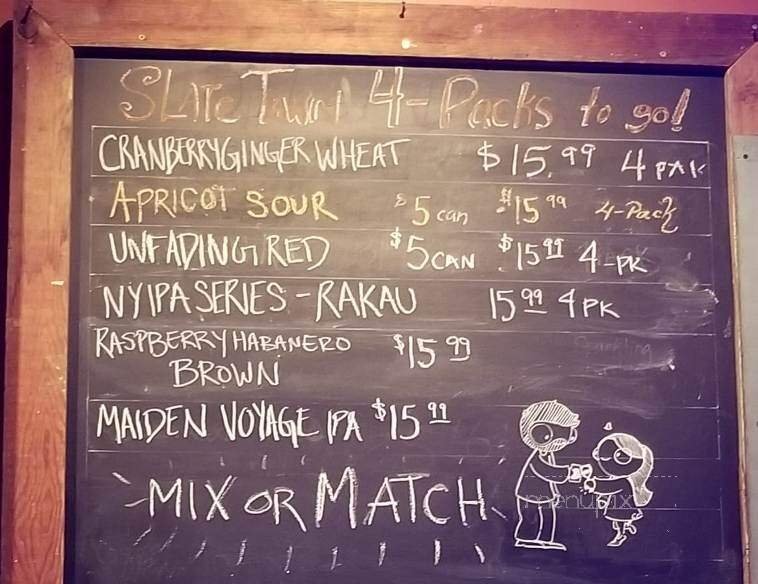 Slate Town 4-Packs to go!
CRANBERRY GINGER WHEAT $15.99 4 PAK
APRICOT SOUR $5 can $15.99 4-Pack
UNFADING RED $5 CAN $15.99 4-PK
NY IPA SERIES - RAKAU 15.99 4PK
RASPBERRY HABANERO $15.99
BROWN
MAIDEN VOYAGE IPA $15.99
MIX OR MATCH
menupix